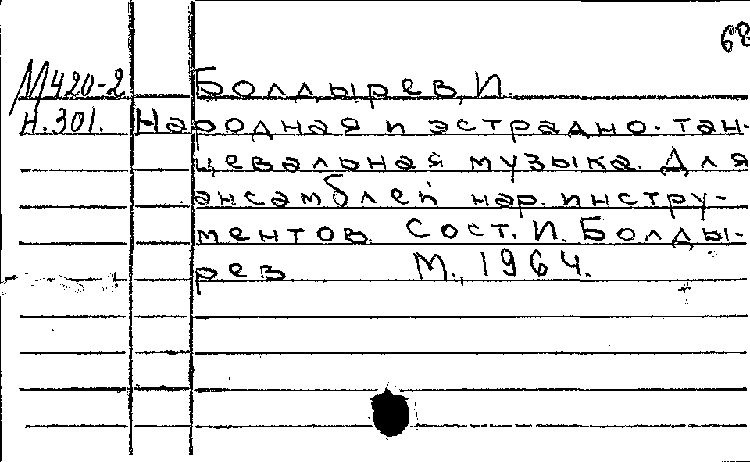 68
М420-2 Болдырев, И.
Н.301. Народная и эстрадно-тан-
цевальная музыка. Для
ансамблей нар. инстру-
ментов. Сост. И. Болды-
рев. М., 1964.